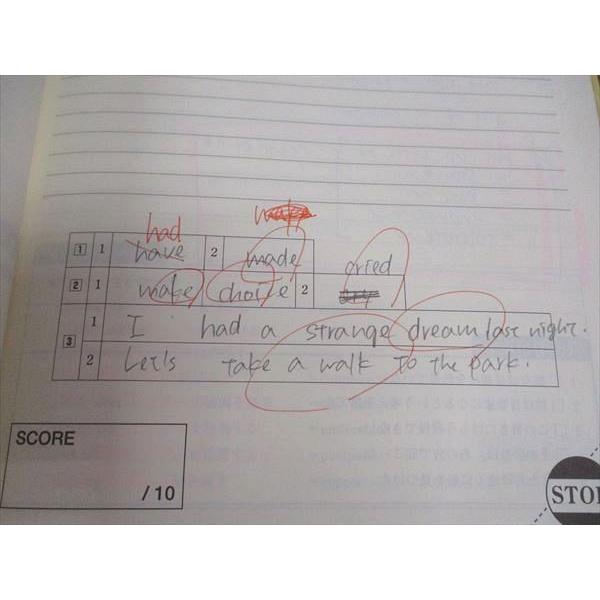 had
1 1 have 2 made
cried
2 1 make choice 2
3 1 I had a strange dream last night.
2 Let's take a walk to the park.
SCORE
/ 10